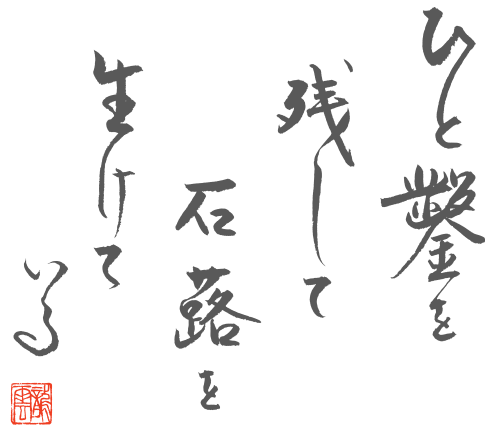 ひと鑿を
残して
石蕗を
生けて
いる